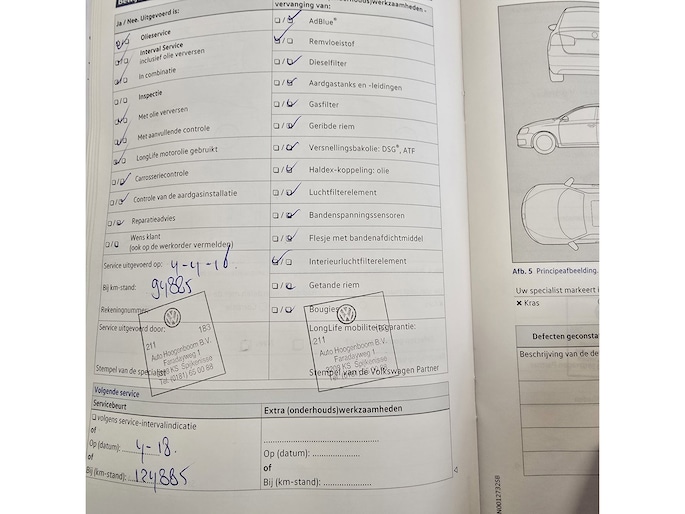 Ja / Nee. Uitgevoerd is:
vervanging van:
❑ / ❑ Olieservice
❑ / ❑ Interval Service
inclusief olie verversen
❑ / ❑ In combinatie
❑ / ❑ Inspectie
❑ / ❑ Met olie verversen
❑ / ❑ Met aanvullende controle
❑ / ❑ LongLife motorolie gebruikt
❑ / ❑ Carrosseriecontrole
❑ / ❑ Controle van de aardgasinstallatie
❑ / ❑ Reparatieadvies
❑ / ❑ Wens klant
(ook op de werkorder vermelden)
Service uitgevoerd op: 4-4-16.
Bij km-stand: 94885
Rekeningnummer
Service uitgevoerd door:
211 183
Auto Hoogenboom B.V.
Faradayweg 1
KS Spijkenisse
Tel. (0181) 65 00 88
Stempel van de specialist
❑ / ❑ AdBlue®
❑ / ❑ Remvloeistof
❑ / ❑ Dieselfilter
❑ / ❑ Aardgastanks en -leidingen
❑ / ❑ Gasfilter
❑ / ❑ Geribde riem
❑ / ❑ Versnellingsbakolie: DSG®, ATF
❑ / ❑ Haldex-koppeling: olie
❑ / ❑ Luchtfilterelement
❑ / ❑ Bandenspanningssensoren
❑ / ❑ Flesje met bandenafdichtmiddel
❑ / ❑ Interieurluchtfilterelement
❑ / ❑ Getande riem
❑ / ❑ Bougies
LongLife mobiliteitsgarantie:
211
Auto Hoogenboom B.V.
Faradayweg 1
KS Spijkenisse
Stempel van de Volkswagen Partner
Volgende service
Servicebeurt
❑ volgens service-intervalindicatie
of
Op (datum): 4-18.
of
Bij (km-stand): 124885
Extra (onderhouds)werkzaamheden
Op (datum):
of
Bij (km-stand):
Afb. 5 Principeafbeelding.
Uw specialist markeert
✕ Kras
Defecten geconsta
Beschrijving van de de